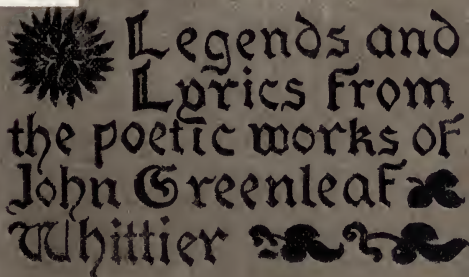 Legends and
Lyrics from
the poetic works of
John Greenleaf
Whittier